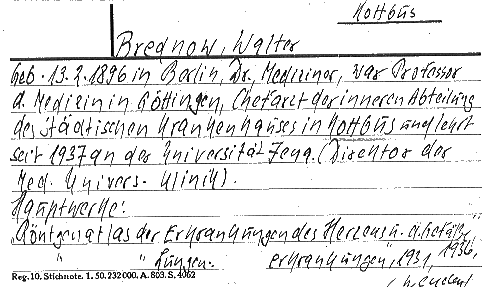 Kottbus
Brednow, Walter
geb. 13.2.1896 in Berlin, Dr., Mediziner, war Professor
d. Medizin in Göttingen, Chefarzt der inneren Abteilung
des städtischen Krankenhauses in Kottbus und lehrt
seit 1937 an der Universität Jena. (Direktor der
Med. Univers.-Klinik).
Hauptwerke:
"Röntgenatlas der Erkrankungen des Herzens u. d. Gefäße,
" " Lungen- erkrankungen", 1931, 1936,
Reg. 10. Stichnote. 1. 50. 232000. A. 803. S. 4062